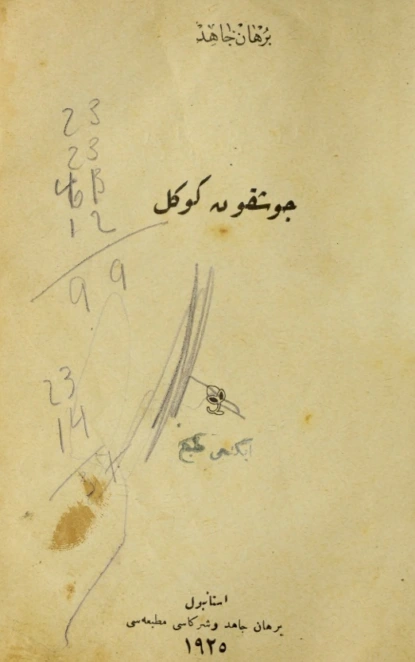 برهان جاهد
23
23
46
12
99
جوشقون كوكل
23
14
37
ایكنجی طبع
استانبول
برهان جاهد وشركاسی مطبعه‌سی
١٩٢٥